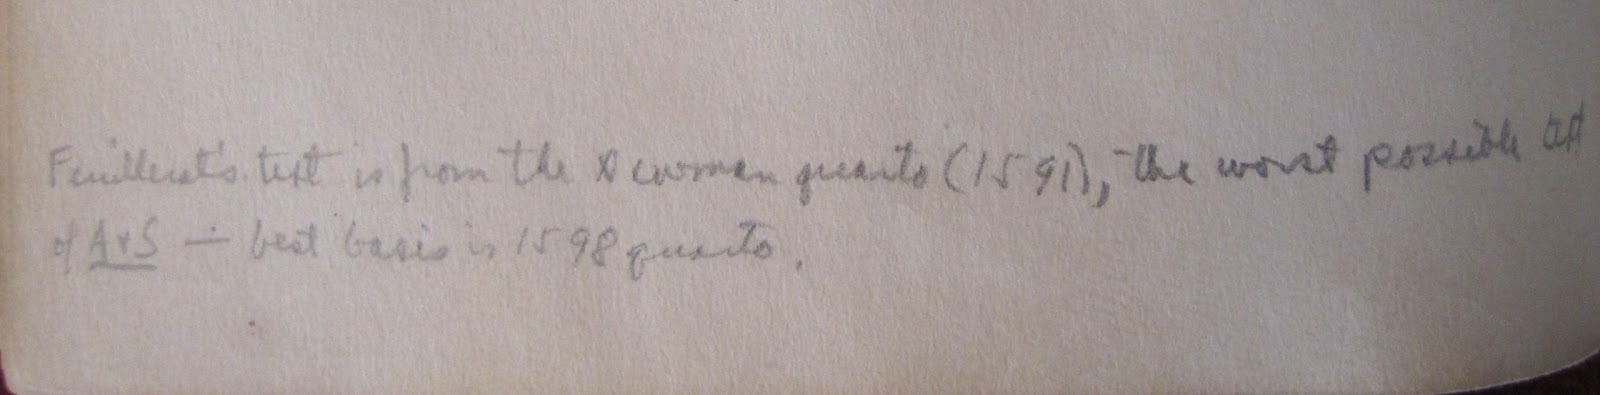 Feuillerat's text is from the Newman quarto (1591), the worst possible text
of A & S — best basis is 1598 quarto.